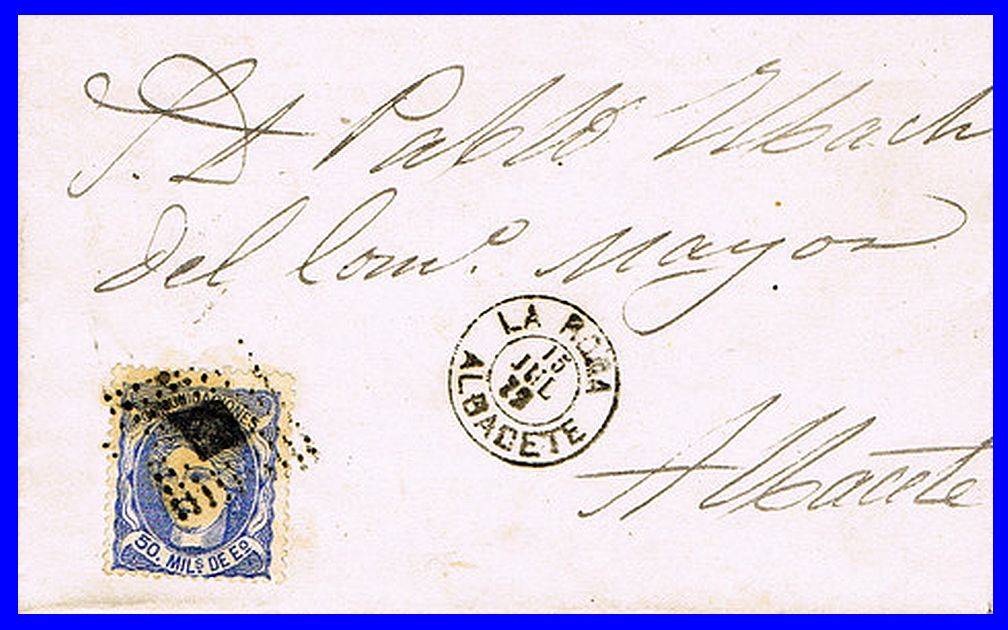 S. D. Pablo Ubach
del Comº. Mayor
LA RODA
15
JUL
72
ALBACETE
Albacete
COMUNICACIONES
50. MILS DE Eº